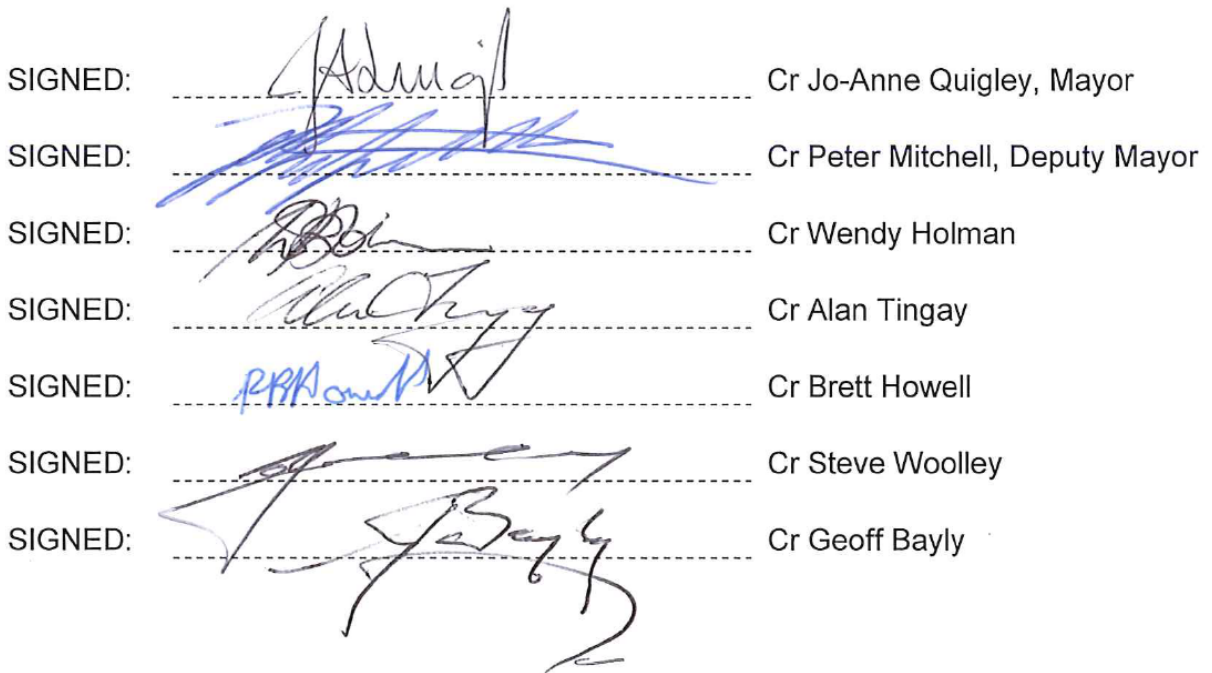 SIGNED: Cr Jo-Anne Quigley, Mayor
SIGNED: Cr Peter Mitchell, Deputy Mayor
SIGNED: Cr Wendy Holman
SIGNED: Cr Alan Tingay
SIGNED: Cr Brett Howell
SIGNED: Cr Steve Woolley
SIGNED: Cr Geoff Bayly